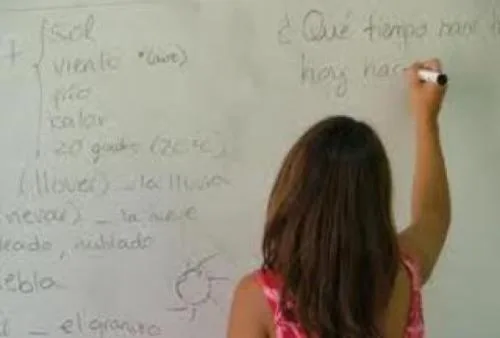 + { sol
viento *(aire)
frío
calor
20 grados (20ºC)
(llover) _ la lluvia
nevar) _ la nieve
leado, nublado
iebla
_ el granizo
¿Qué tiempo hace
hoy hac